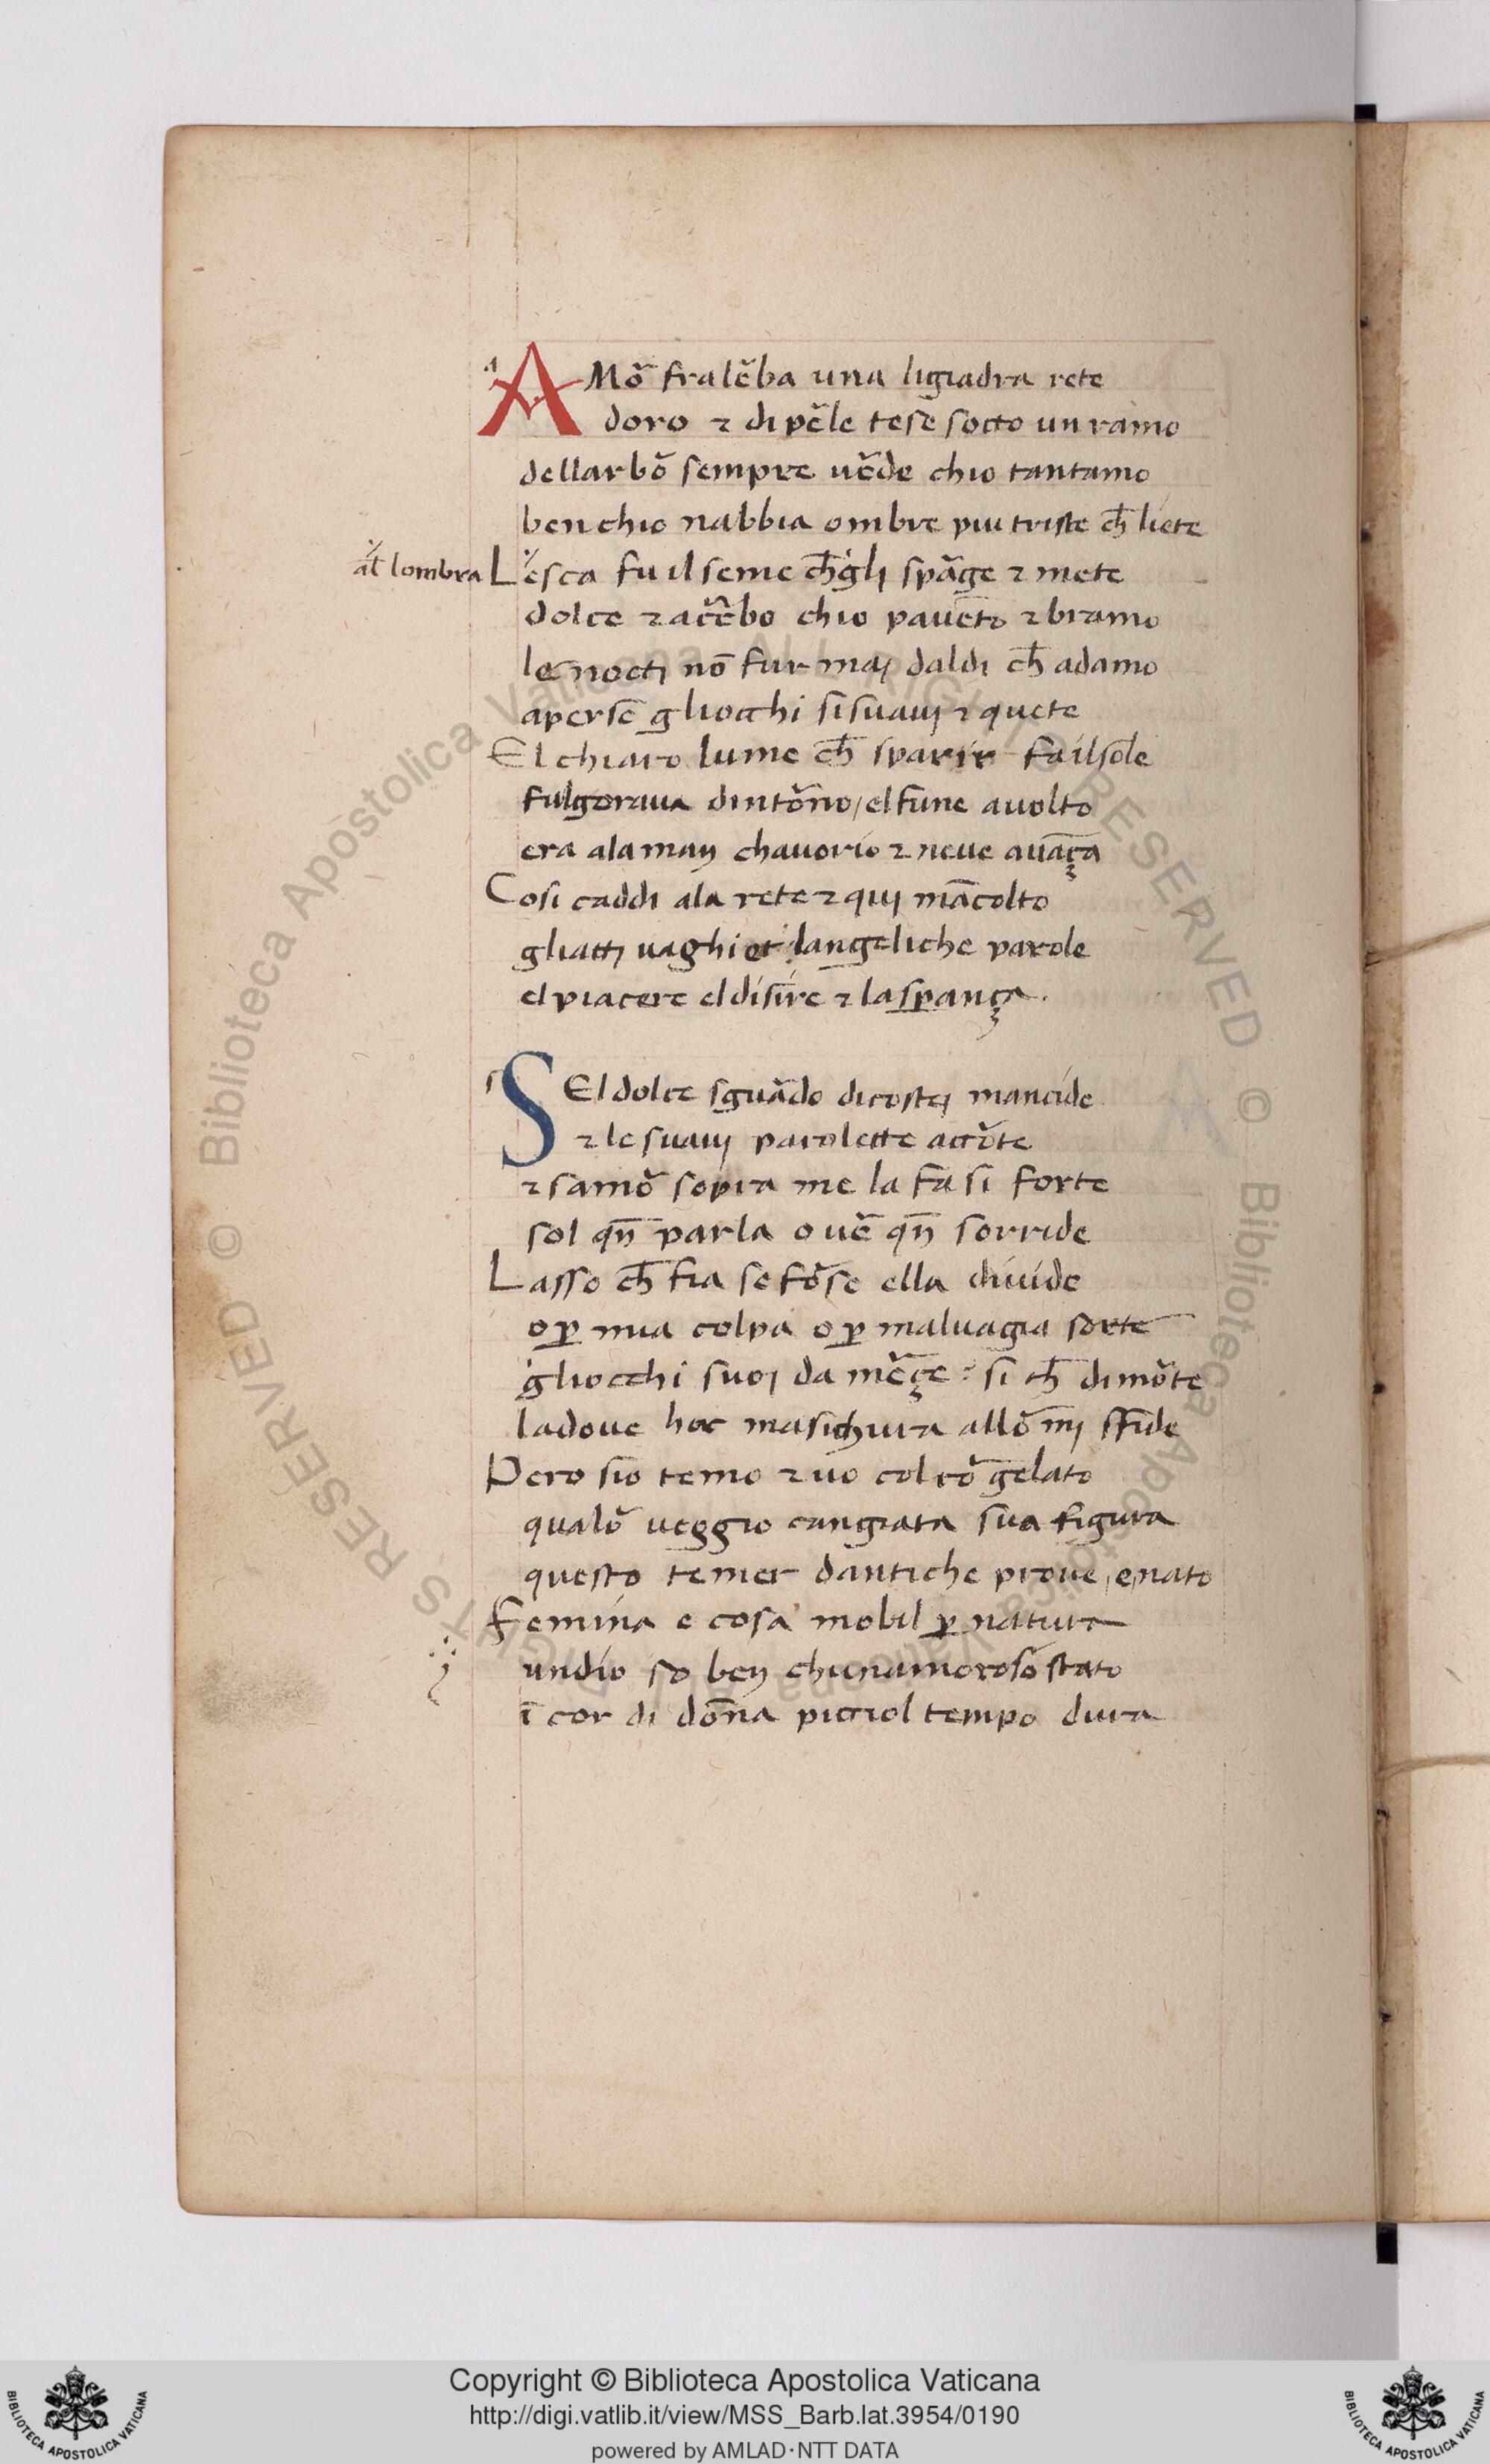 AMor̃ fralẽba una ligiadra rete
doro ⁊ di pẽle tese socto un ramo
dellarbõ sempre uẽde chio tantamo
ben chio nabbia ombre piu triste ch̄ liete
al̃ lombra Lesca fu il seme ch̄ gli spãge ⁊ mete
dolce ⁊ acẽbo chio pauẽto ⁊ bramo
le noctj nõ fur maj daldi ch̄ adamo
aperse gliocchi si suauj ⁊ quete
El chiaro lume ch̄ sparir fa il sole
fulgoraua dintõno / el fune auolto
era ala man chauorio ⁊ neue auãça
Cosi caddi ala rete ⁊ quj mãcolto
gliattj uaghi et langeliche parole
el piacere el disire ⁊ la sperança .
SEl dolce sguãdo di costej mancide
⁊ le suauj parolette accõte
⁊ samõ sopra me la fa si forte
sol qn̄ parla o uẽ qn̄ sorride
Lasso ch̄ fia se fõse ella diuide
o ꝑ mia colpa o ꝑ maluagia sorte
gliocchi suoj da mẽçe : si ch̄ di mõte
la doue hor masichura allõ mj sfide
Pero sio temo ⁊ uo col cõ gelato
qualõ ueggio cangiata sua figura
questo temer dantiche proue / e / nato
Femina e cosa mobil ꝑ natura
undio so ben chunamoroso stato
ĩ cor di dõna picciol tempo dura
Copyright © Biblioteca Apostolica Vaticana
http://digi.vatlib.it/view/MSS_Barb.lat.3954/0190
powered by AMLAD·NTT DATA
BIBLIOTECA APOSTOLICA VATICANA
BIBLIOTECA APOSTOLICA VATICANA